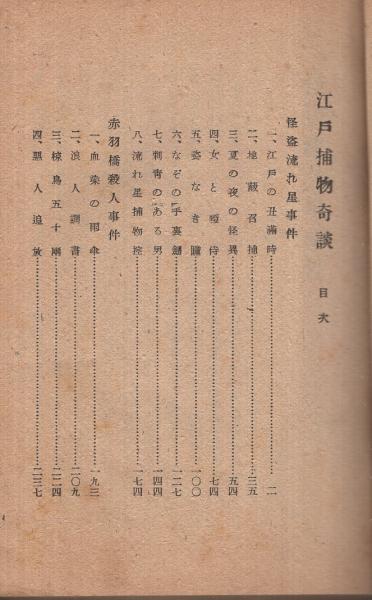 江戸捕物奇談 目次
怪盗流れ星事件
一、江戸の丑満時……二
二、地蔵召捕……三五
三、夏の夜の怪異……五四
四、女と啞侍……七四
五、姿なき瞳……一〇〇
六、なぞの手裏劍……一二七
七、刺青のある男……一四四
八、流れ星捕物控……一七四
赤羽橋殺人事件
一、血染の雨傘……一九三
二、浪人調書……二〇九
三、椋鳥五十兩……二二四
四、悪人追放……二三七